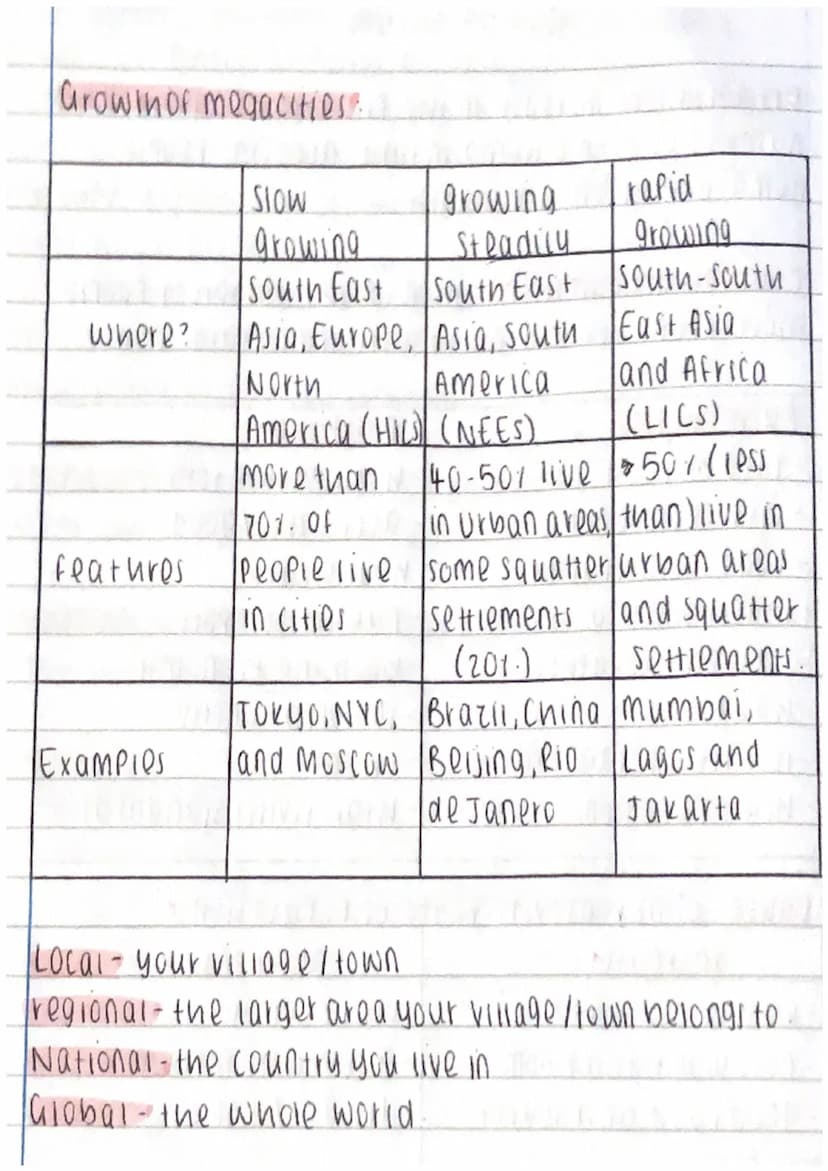 Growth of megacities:
slow growing
growing steadily
rapid growing
where?
South East Asia, Europe, North America (HICs)
South East Asia, South America (NEEs)
South-South East Asia and Africa (LICs)
features
more than 70% of people live in cities
40-50% live in urban areas, some squatter settlements (20%.)
50% (less than) live in urban areas and squatter settlements.
Examples
TOKYO, NYC, and Moscow
Brazil, China Beijing, Rio de Janero
Mumbai, Lagos and Jakarta
Local - your village/town
regional - the larger area your village/town belongs to
National - the country you live in
Global - the whole world